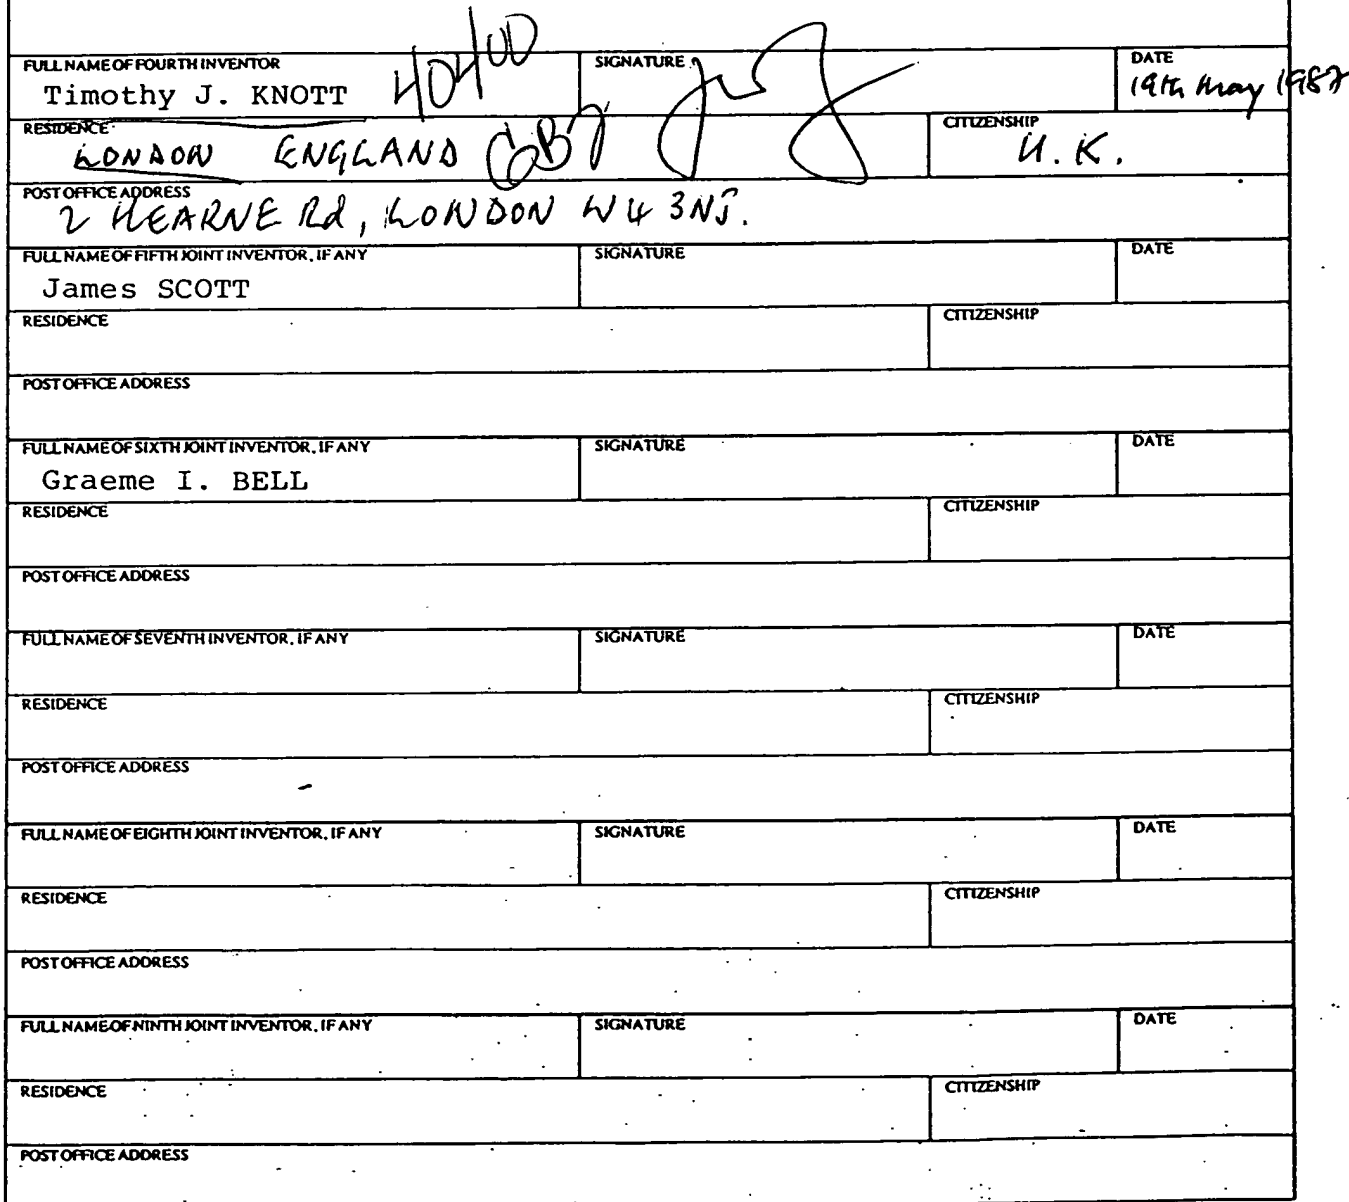 40400
FULL NAME OF FOURTH INVENTOR SIGNATURE DATE
Timothy J. KNOTT 19th May 1987
RESIDENCE CITIZENSHIP
LONDON ENGLAND GB U.K.
POST OFFICE ADDRESS
2 HEARNE Rd, LONDON W4 3NJ.
FULL NAME OF FIFTH JOINT INVENTOR, IF ANY SIGNATURE DATE
James SCOTT
RESIDENCE CITIZENSHIP
POST OFFICE ADDRESS
FULL NAME OF SIXTH JOINT INVENTOR, IF ANY SIGNATURE DATE
Graeme I. BELL
RESIDENCE CITIZENSHIP
POST OFFICE ADDRESS
FULL NAME OF SEVENTH INVENTOR, IF ANY SIGNATURE DATE
RESIDENCE CITIZENSHIP
POST OFFICE ADDRESS
FULL NAME OF EIGHTH JOINT INVENTOR, IF ANY SIGNATURE DATE
RESIDENCE CITIZENSHIP
POST OFFICE ADDRESS
FULL NAME OF NINTH JOINT INVENTOR, IF ANY SIGNATURE DATE
RESIDENCE CITIZENSHIP
POST OFFICE ADDRESS